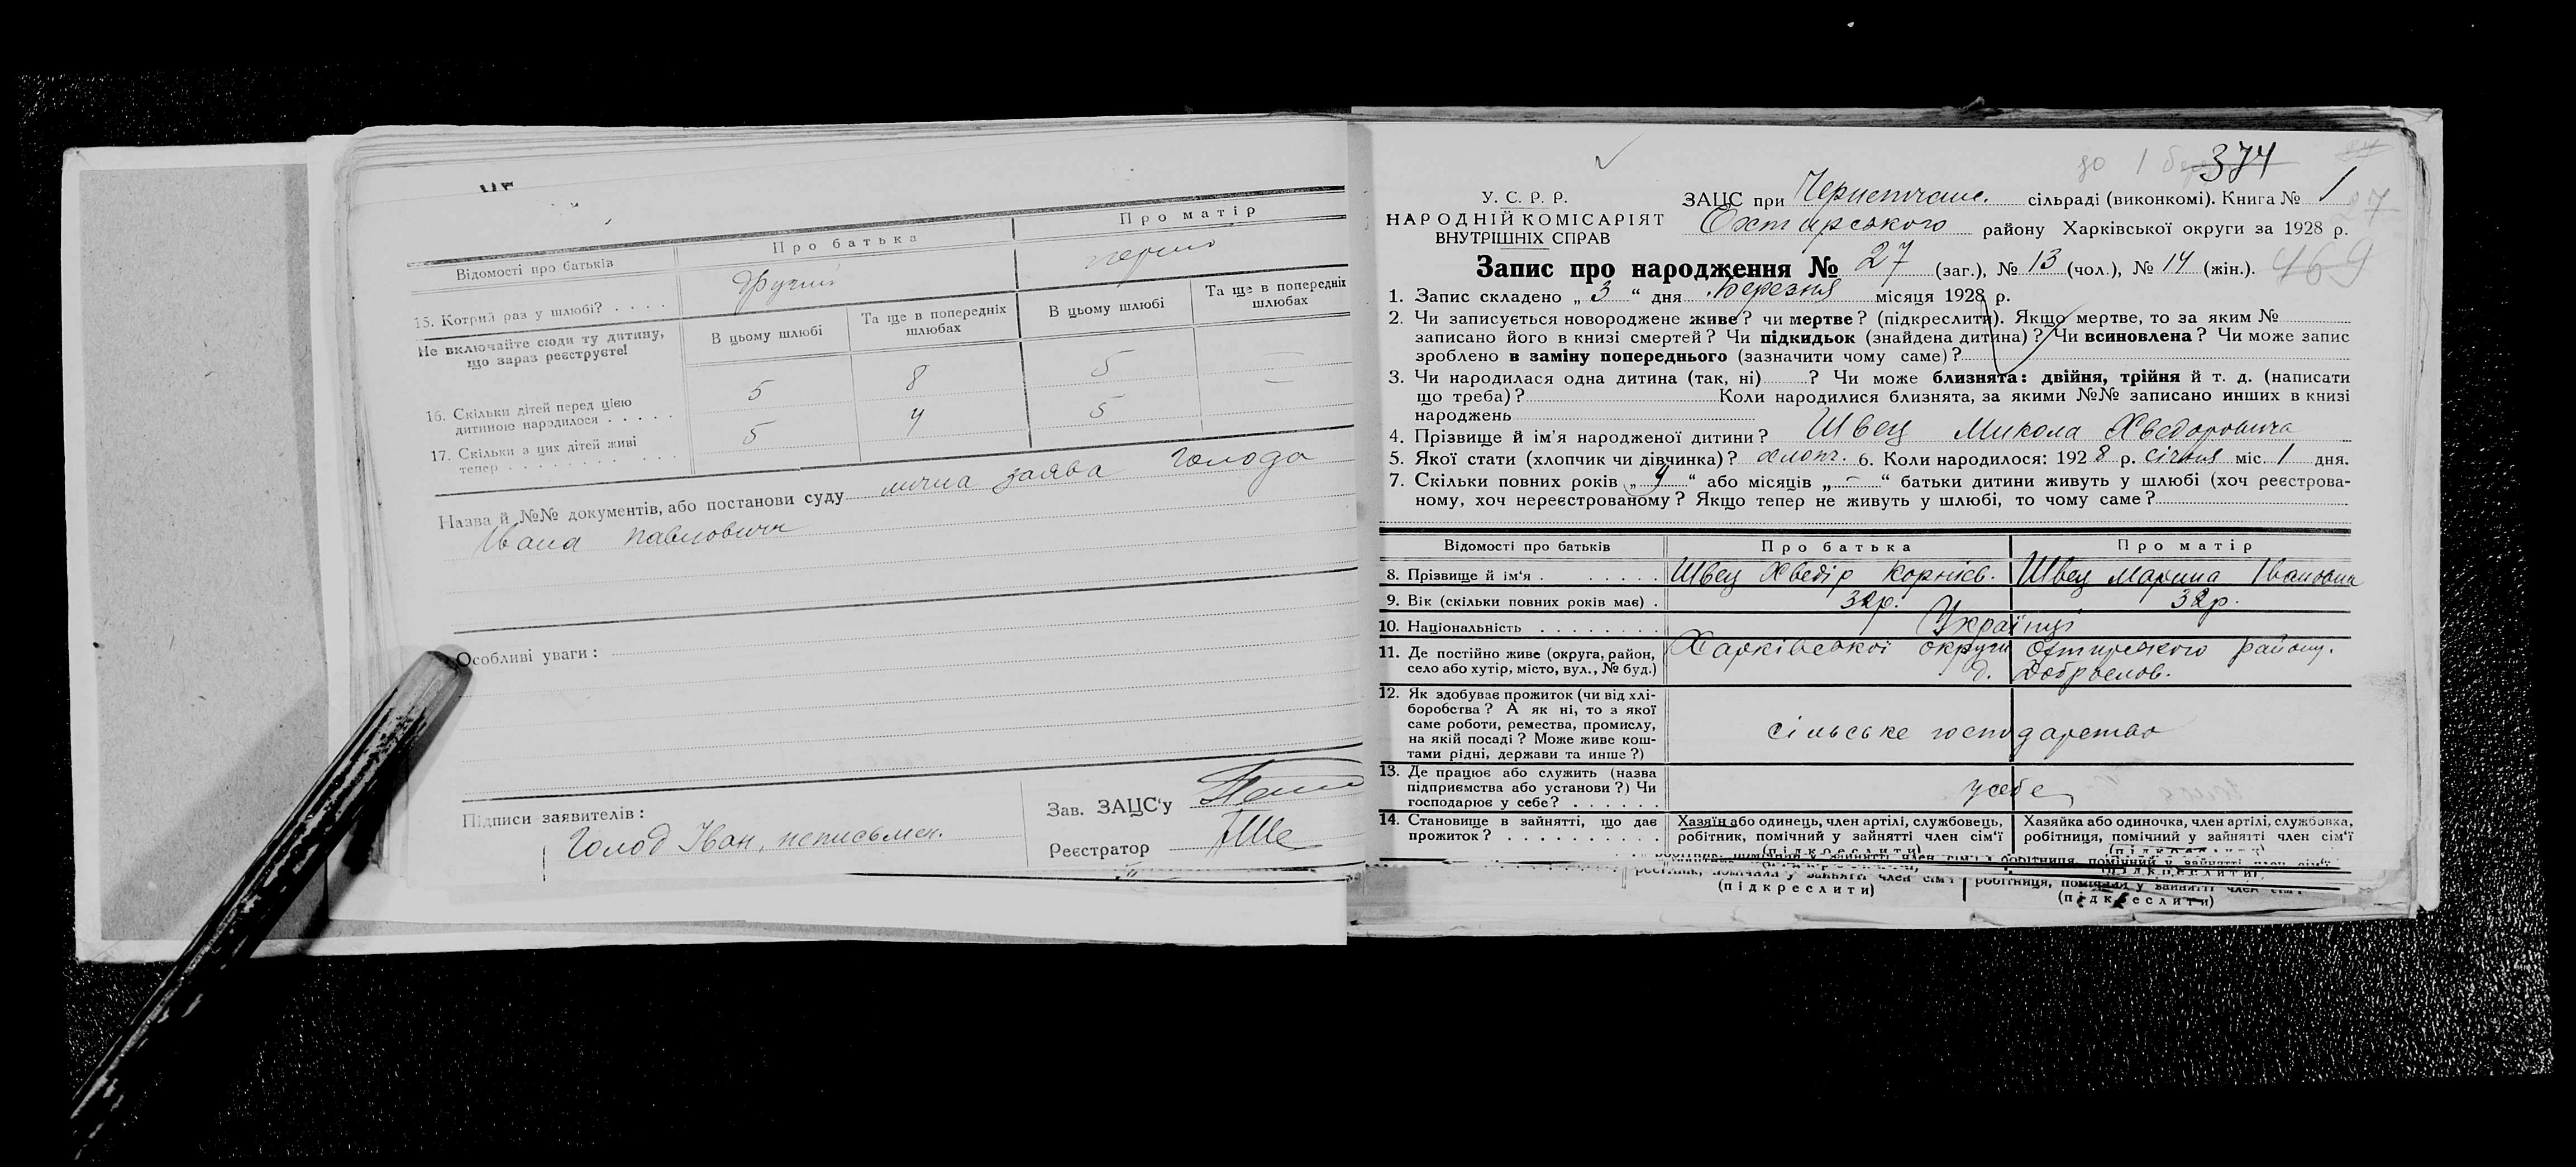 Відомості про батьків
Про батька
Про матір
15. Котрий раз у шлюбі? . . . .
Другий
перший
Не включайте сюди ту дитину,
що зараз реєструєте!
В цьому шлюбі
Та ще в попередніх
шлюбах
В цьому шлюбі
Та ще в попередніх
шлюбах
16. Скільки дітей перед цією
дитиною народилося . . . . .
5
8
5
—
17. Скільки з цих дітей живі
тепер . . . . . . . . . . .
5
4
5
Назва й №№ документів, або постанови суду лична заява Голода
Івана Павловича
Особливі уваги:
Підписи заявителів:
Голод Іван, неписьмен.
Зав. ЗАЦС'у
Реєстратор
374
У. С. Р. Р.
НАРОДНІЙ КОМІСАРІЯТ
ВНУТРІШНІХ СПРАВ
ЗАЦС при сільраді (виконкомі). Книга № 1
Охтирського району Харківської округи за 1928 р.
27
469
Запис про народження № 27 (заг.), № 13 (чол.), № 14 (жін.).
1. Запис складено „ 3 “ дня Березня місяця 1928 р.
2. Чи записується новороджене живе? чи мертве? (підкреслити). Якщо мертве, то за яким №
записано його в книзі смертей? Чи підкидьок (знайдена дитина)? Чи всиновлена? Чи може запис
зроблено в заміну попереднього (зазначити чому саме)?
3. Чи народилася одна дитина (так, ні) ? Чи може близнята: двійня, трійня й т. д. (написати
що треба)? Коли народилися близнята, за якими №№ записано инших в книзі
народжень
4. Прізвище й ім'я народженої дитини? Швец Микола Хведоровича
5. Якої стати (хлопчик чи дівчинка)? хлопч. 6. Коли народилося: 1928 р. січня міс. 1 дня.
7. Скільки повних років „ 9 “ або місяців „ – “ батьки дитини живуть у шлюбі (хоч реєстрова-
ному, хоч нереєстрованому? Якщо тепер не живуть у шлюбі, то чому саме?
Відомості про батьків
Про батька
Про матір
8. Прізвище й ім'я . . . . . .
Швец Хведір Корнієв.
Швец Марина Івановна
9. Вік (скільки повних років має) .
32р.
32р.
10. Національність . . . . . . . .
Українці
11. Де постійно живе (округа, район,
село або хутір, місто, вул., № буд.)
Харківської округи Охтирського району.
12. Як здобуває прожиток (чи від хлі-
боробства? А як ні, то з якої
саме роботи, ремества, промислу,
на якій посаді? Може живе кош-
тами рідні, держави та инше?)
сільське господарство
13. Де працює або служить (назва
підприємства або установи?) Чи
господарює у себе? . . . . . .
у себе
14. Становище в зайнятті, що дає
прожиток? . . . . . . . . . .
Хазяїн або одинець, член артілі, службовець,
робітник, помічний у зайнятті член сім'ї
(підкреслити)
Хазяйка або одиночка, член артілі, службовка,
робітниця, помічний у зайнятті член сім'ї
(підкреслити)
(підкреслити)
робітниця, помічний у зайнятті член сім'ї
(підкреслити)